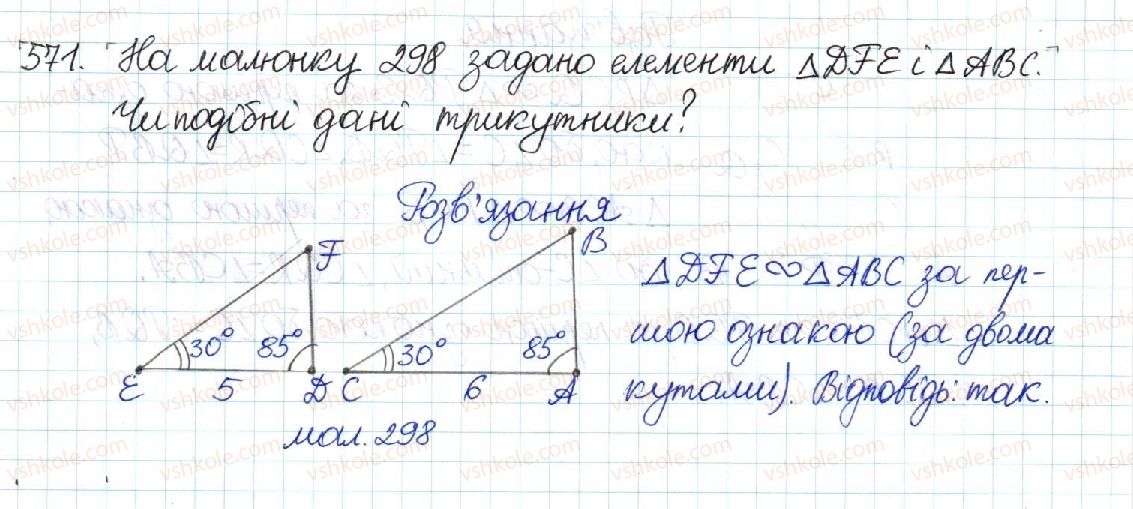 571. На малюнку 298 задано елементи △DFE і △ABC.
Чи подібні дані трикутники?
Розв'язання
F
B
30°
85°
30°
85°
E 5 D C 6 A
мал. 298
△DFE∞△ABC за пер-
шою ознакою (за двома
кутами). Відповідь: так.